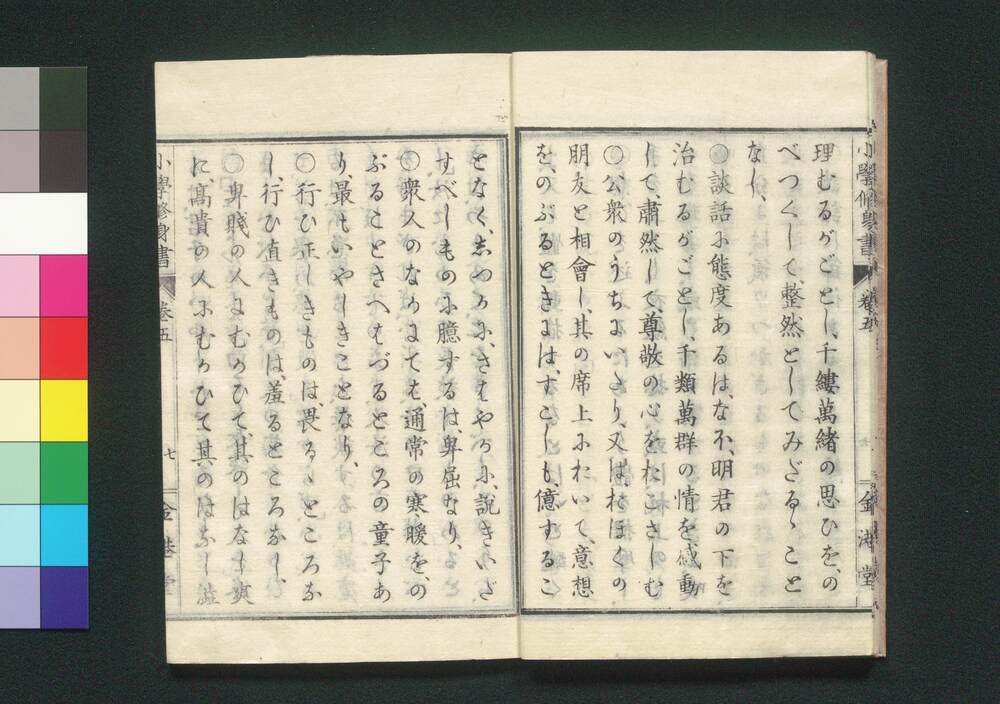 小學修身書 卷五 金港堂
理むるがごとし、千縷萬緒の思ひを、の
べつくして、整然としてみだるゝこと
なし、
○談話に態度あるは、なほ、明君の下を
治むるがごとし、千類萬群の情を、感動
して、肅然して、尊敬の心をおこさしむ
○公衆のうちにいたり、又は、おほくの
朋友と相會し、其の席上において、意想
を、のぶるときには、すこしも、億するこ
となく、しづかに、さはやかに、説きいだ
すべしものに臆するは卑屈なり、
○衆人のなかにても、通常の寒暖を、の
ぶることさへはづるところの童子あ
り、最もいやしきことなり、
○行ひ正しきものは、畏るゝところな
し、行ひ直きものは、羞るところなし、
○卑賤の人にむかひて其のはなし爽
に、高貴の人にむかひて其のはなし澁
小學修身書 卷五 七 金港堂